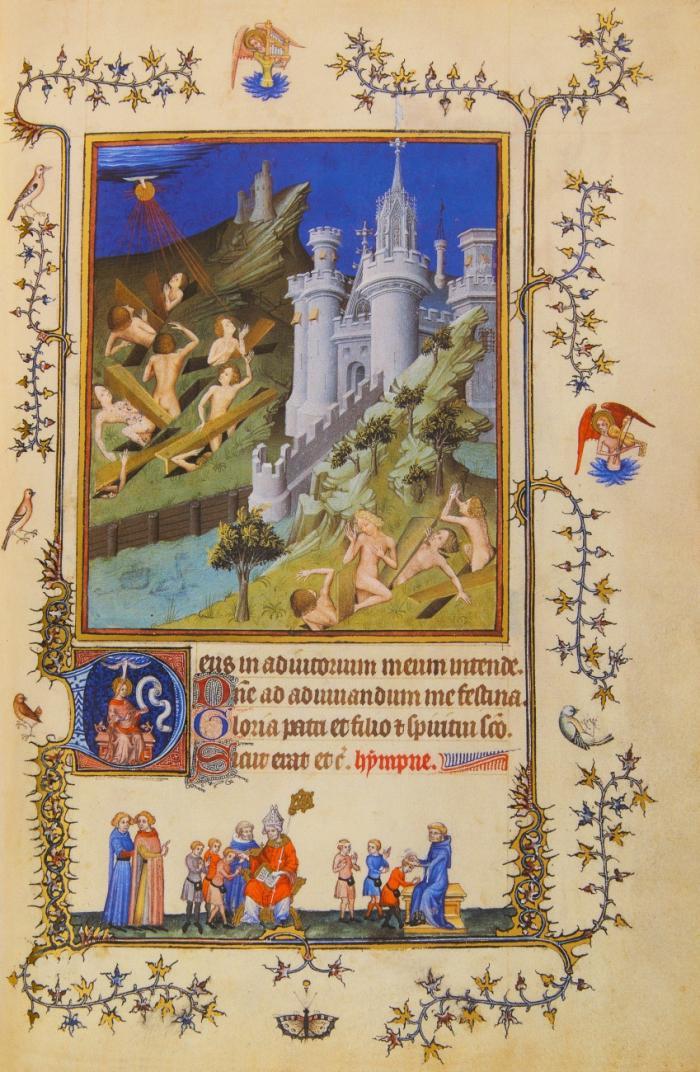 Deus in adiutorium meum intende.
Dñe ad adiuuandum me festina.
Gloria patri et filio ⁊ spiritui sc̄o.
Sicut erat et c̄. hẏmpne.